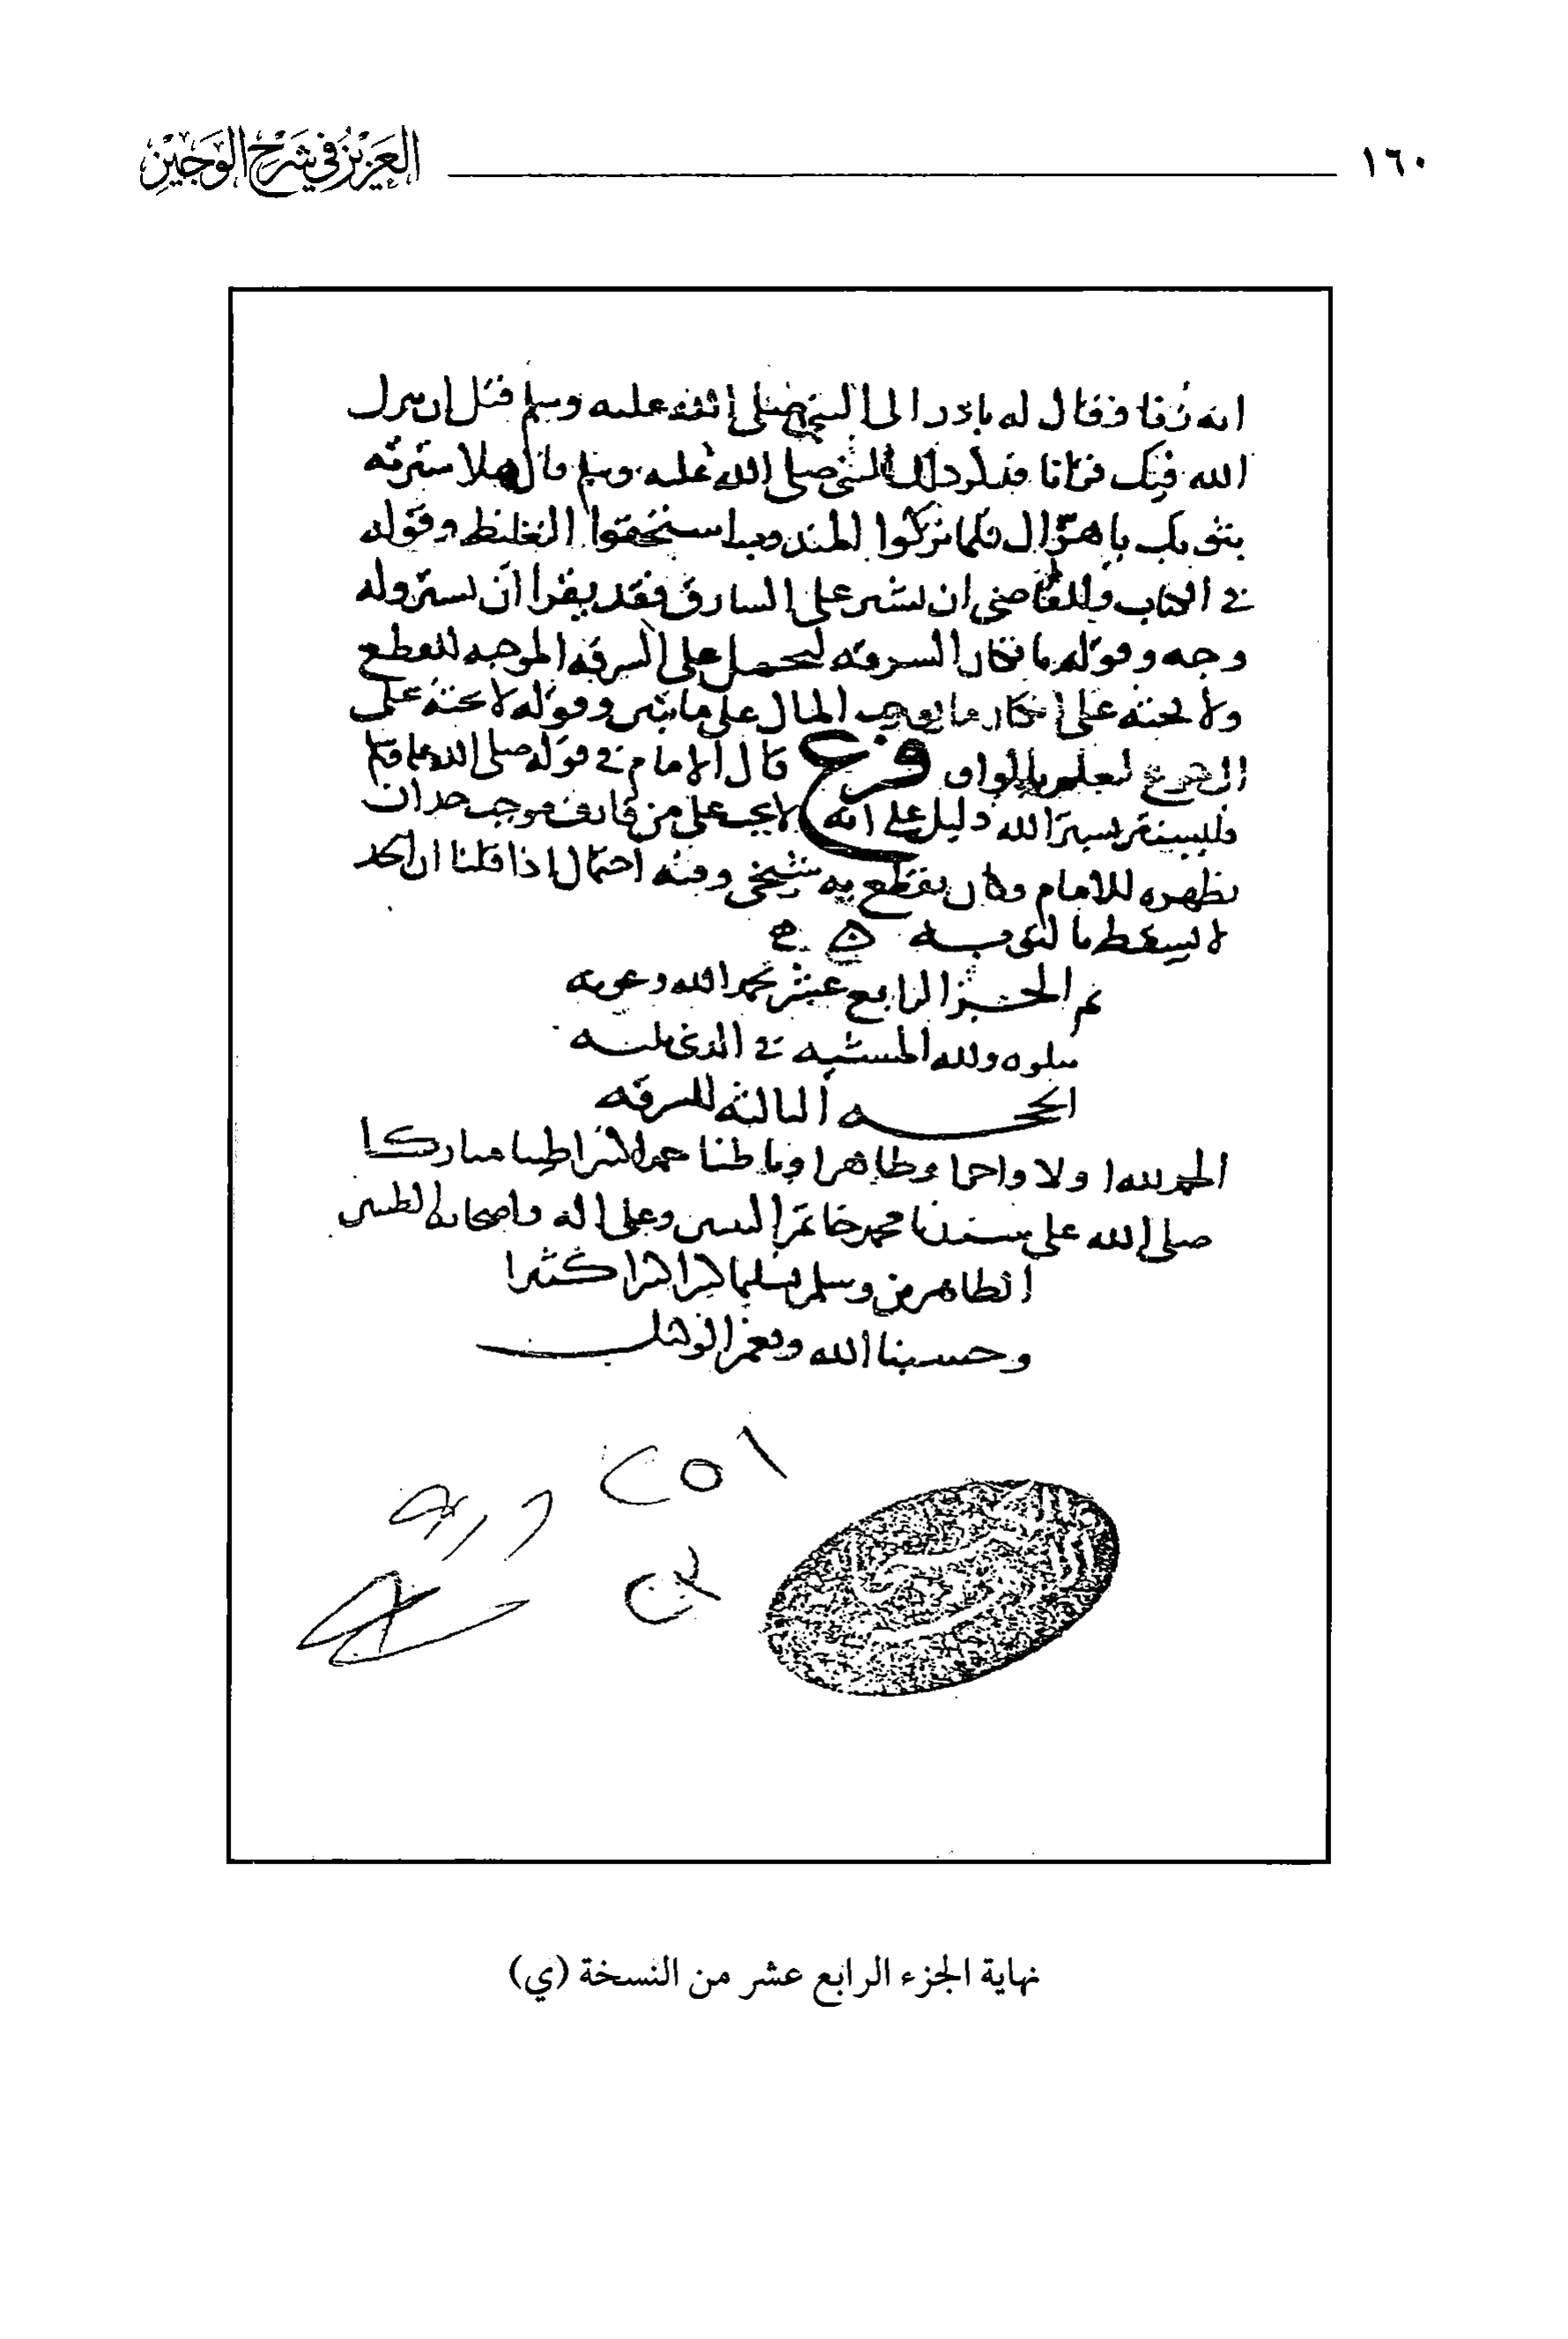 ١٦٠
العزيز في شرح الوجيز
انه زنا فقال له بادر الى النبي صلى الله عليه وسلم قبل ان ينزل
الله فيك قرانا فذكر ذلك للنبي صلى الله عليه وسلم قال هلا سترته
بثوبك يا هزال فلما تركوا المندوب استحقوا التغليظ وقوله
في الكتاب وللقاضي ان يشير على السارق فقد يقرا ان نستر وله
وجه وقوله بانكار السرقه ليحمل على السرقه الموجبه للقطع
ولا يحثه على انكار ما يوجب المال على ما تبين وقوله لا يحثه على
الرجوع ليعلم بالواو فرع قال الامام في قوله صلى الله عليه وسلم
فليستتر بستر الله دليل على انه لا يجب على من قارف موجب حد ان
يظهره للامام وكان يقطع به شيخي وفيه احتمال اذا قلنا ان الحد
لا يسقط بالتوبه
تم الجز الرابع عشر بحمد الله وعونه
يتلوه ولله المشيه في الذي يليه
الحجه الثالثه للسرقه
الحمد لله اولا واخرا وظاهرا وباطنا حمدا كثيرا طيبا مباركا
صلى الله على سيدنا محمد خاتم النبيين وعلى اله واصحابه الطيبين
الطاهرين وسلم تسليما كثيرا كثيرا كثيرا
وحسبنا الله ونعم الوكيل
٢٥١
نهاية الجزء الرابع عشر من النسخة (ي)